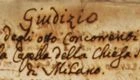 Giudizio
degli otto Concorrenti
la Capella della Chiesa
di Milano.